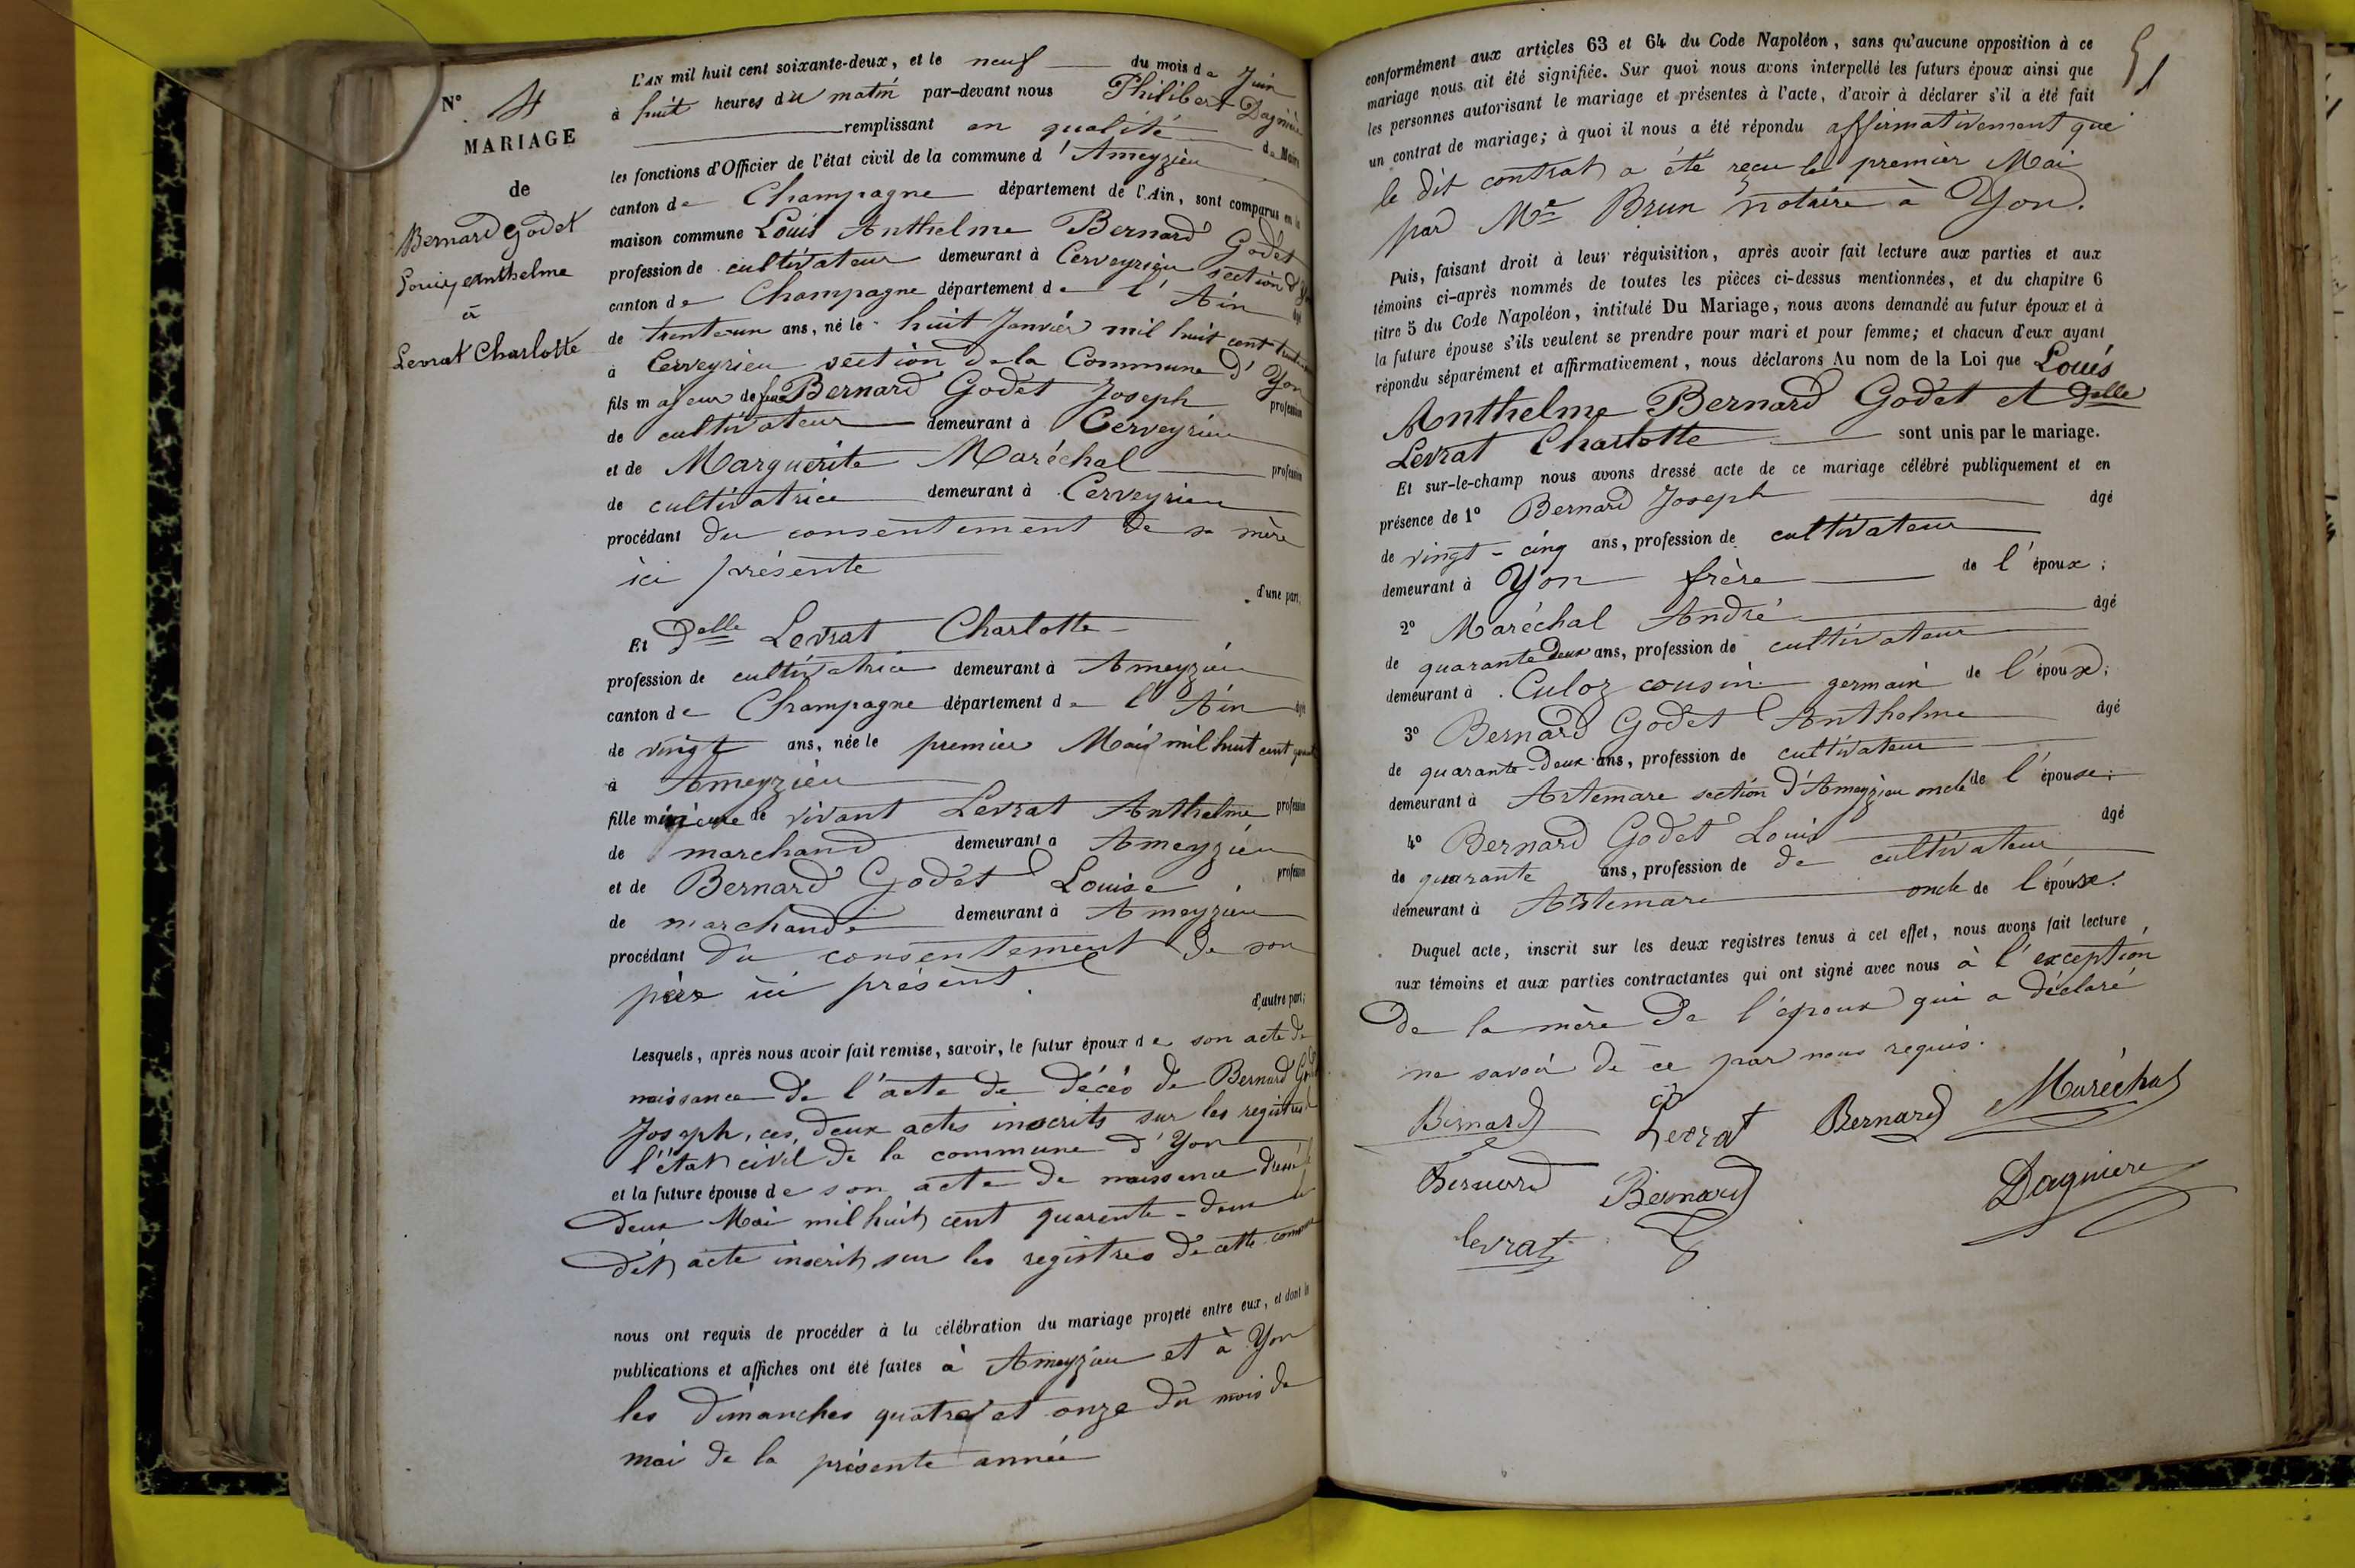 N° 4
MARIAGE
de
Bernard Godet
Louis Anthelme
à
Levrat Charlotte
L'AN mil huit cent soixante-deux, et le neuf du mois de Juin
à huit heures du matin par-devant nous Philibert Dagnière
remplissant en qualité de Maire
les fonctions d'Officier de l'état civil de la commune d'Ameyzieu
canton de Champagne département de l'Ain, sont comparus en la
maison commune Louis Anthelme Bernard Godet
profession de cultivateur demeurant à Cerveyrieu section d'Yon
canton de Champagne département de l'Ain âgé
de trente-un ans, né le huit Janvier mil huit cent
à Cerveyrieu section de la Commune d'Yon
fils majeur de feu Bernard Godet Joseph profession
de cultivateur demeurant à Cerveyrieu
et de Marguerite Maréchal profession
de cultivatrice demeurant à Cerveyrieu
procédant du consentement de sa mère
ici présente
d'une part,
Et Delle Levrat Charlotte
profession de cultivatrice demeurant à Ameyzieu
canton de Champagne département de l'Ain âgée
de vingt ans, née le premier Mai mil huit cent
à Ameyzieu
fille mineure de vivant Levrat Anthelme profession
de marchand demeurant à Ameyzieu
et de Bernard Godet Louise profession
de marchande demeurant à Ameyzieu
procédant du consentement de son
père ici présent
d'autre part;
Lesquels, après nous avoir fait remise, savoir, le futur époux de son acte de
naissance de l'acte de décès de Bernard Godet
Joseph, ces deux actes inscrits sur les registres de
l'état civil de la commune d'Yon
et la future épouse de son acte de naissance dressé le
deux Mai mil huit cent quarente-deux
dit acte inscrit sur les registres de cette commune
nous ont requis de procéder à la célébration du mariage projeté entre eux, et dont les
publications et affiches ont été faites à Ameyzieu et à Yon
les dimanches quatre et onze du mois de
mai de la présente année
51
conformément aux articles 63 et 64 du Code Napoléon, sans qu'aucune opposition à ce
mariage nous ait été signifiée. Sur quoi nous avons interpellé les futurs époux ainsi que
les personnes autorisant le mariage et présentes à l'acte, d'avoir à déclarer s'il a été fait
un contrat de mariage; à quoi il nous a été répondu affirmativement que
le dit contrat a été reçu le premier Mai
par Me Brun notaire à Yon.
Puis, faisant droit à leur réquisition, après avoir fait lecture aux parties et aux
témoins ci-après nommés de toutes les pièces ci-dessus mentionnées, et du chapitre 6
titre 5 du Code Napoléon, intitulé Du Mariage, nous avons demandé au futur époux et à
la future épouse s'ils veulent se prendre pour mari et pour femme; et chacun d'eux ayant
répondu séparément et affirmativement, nous déclarons Au nom de la Loi que Louis
Anthelme Bernard Godet et Delle
Levrat Charlotte sont unis par le mariage.
Et sur-le-champ nous avons dressé acte de ce mariage célébré publiquement et en
présence de 1° Bernard Joseph âgé
de vingt-cinq ans, profession de cultivateur
demeurant à Yon frère de l'époux;
2° Maréchal André âgé
de quarante deux ans, profession de cultivateur
demeurant à Culoz cousin germain de l'époux;
3° Bernard Godet Anthelme âgé
de quarante-deux ans, profession de cultivateur
demeurant à Artemare section d'Ameyzieu oncle de l'épouse;
4° Bernard Godet Louis âgé
de quarante ans, profession de de cultivateur
demeurant à Artemare oncle de l'épouse.
Duquel acte, inscrit sur les deux registres tenus à cet effet, nous avons fait lecture
aux témoins et aux parties contractantes qui ont signé avec nous à l'exception
de la mère de l'époux qui a déclaré
ne savoir de ce par nous requis.
Bernard cte Levrat Bernard Maréchal
Bernard Bernard Dagniere
levrat